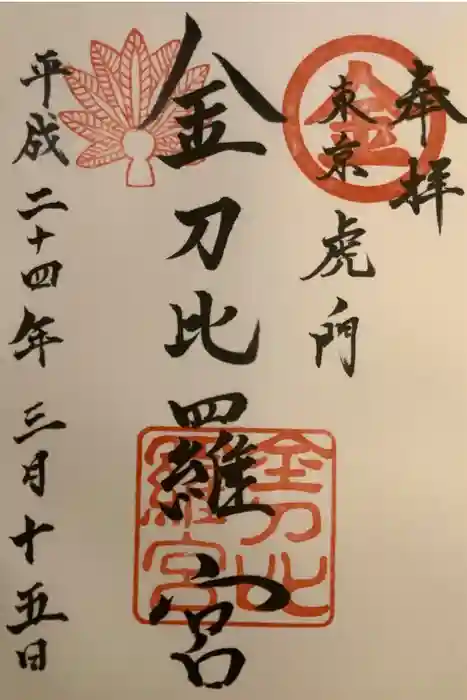 奉拝
東京虎門
金刀比羅宮
平成二十四年三月十五日
金
金刀比羅宮